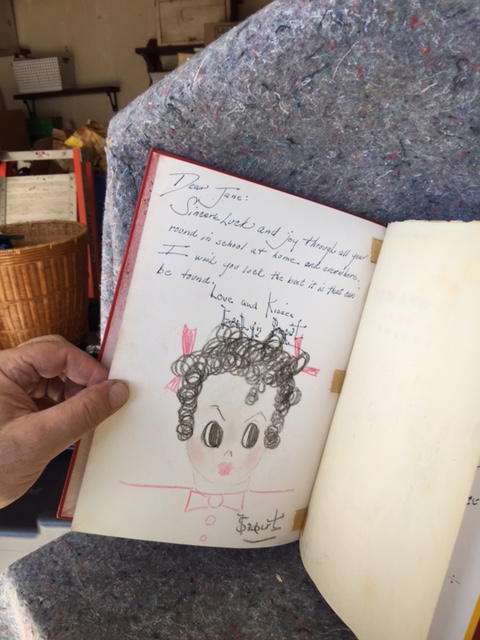 Dear Jane:
Sincere Luck and joy through all your
round in school at home and anywhere.
I wish you luck the best it is that can
be found.
Love and Kisses